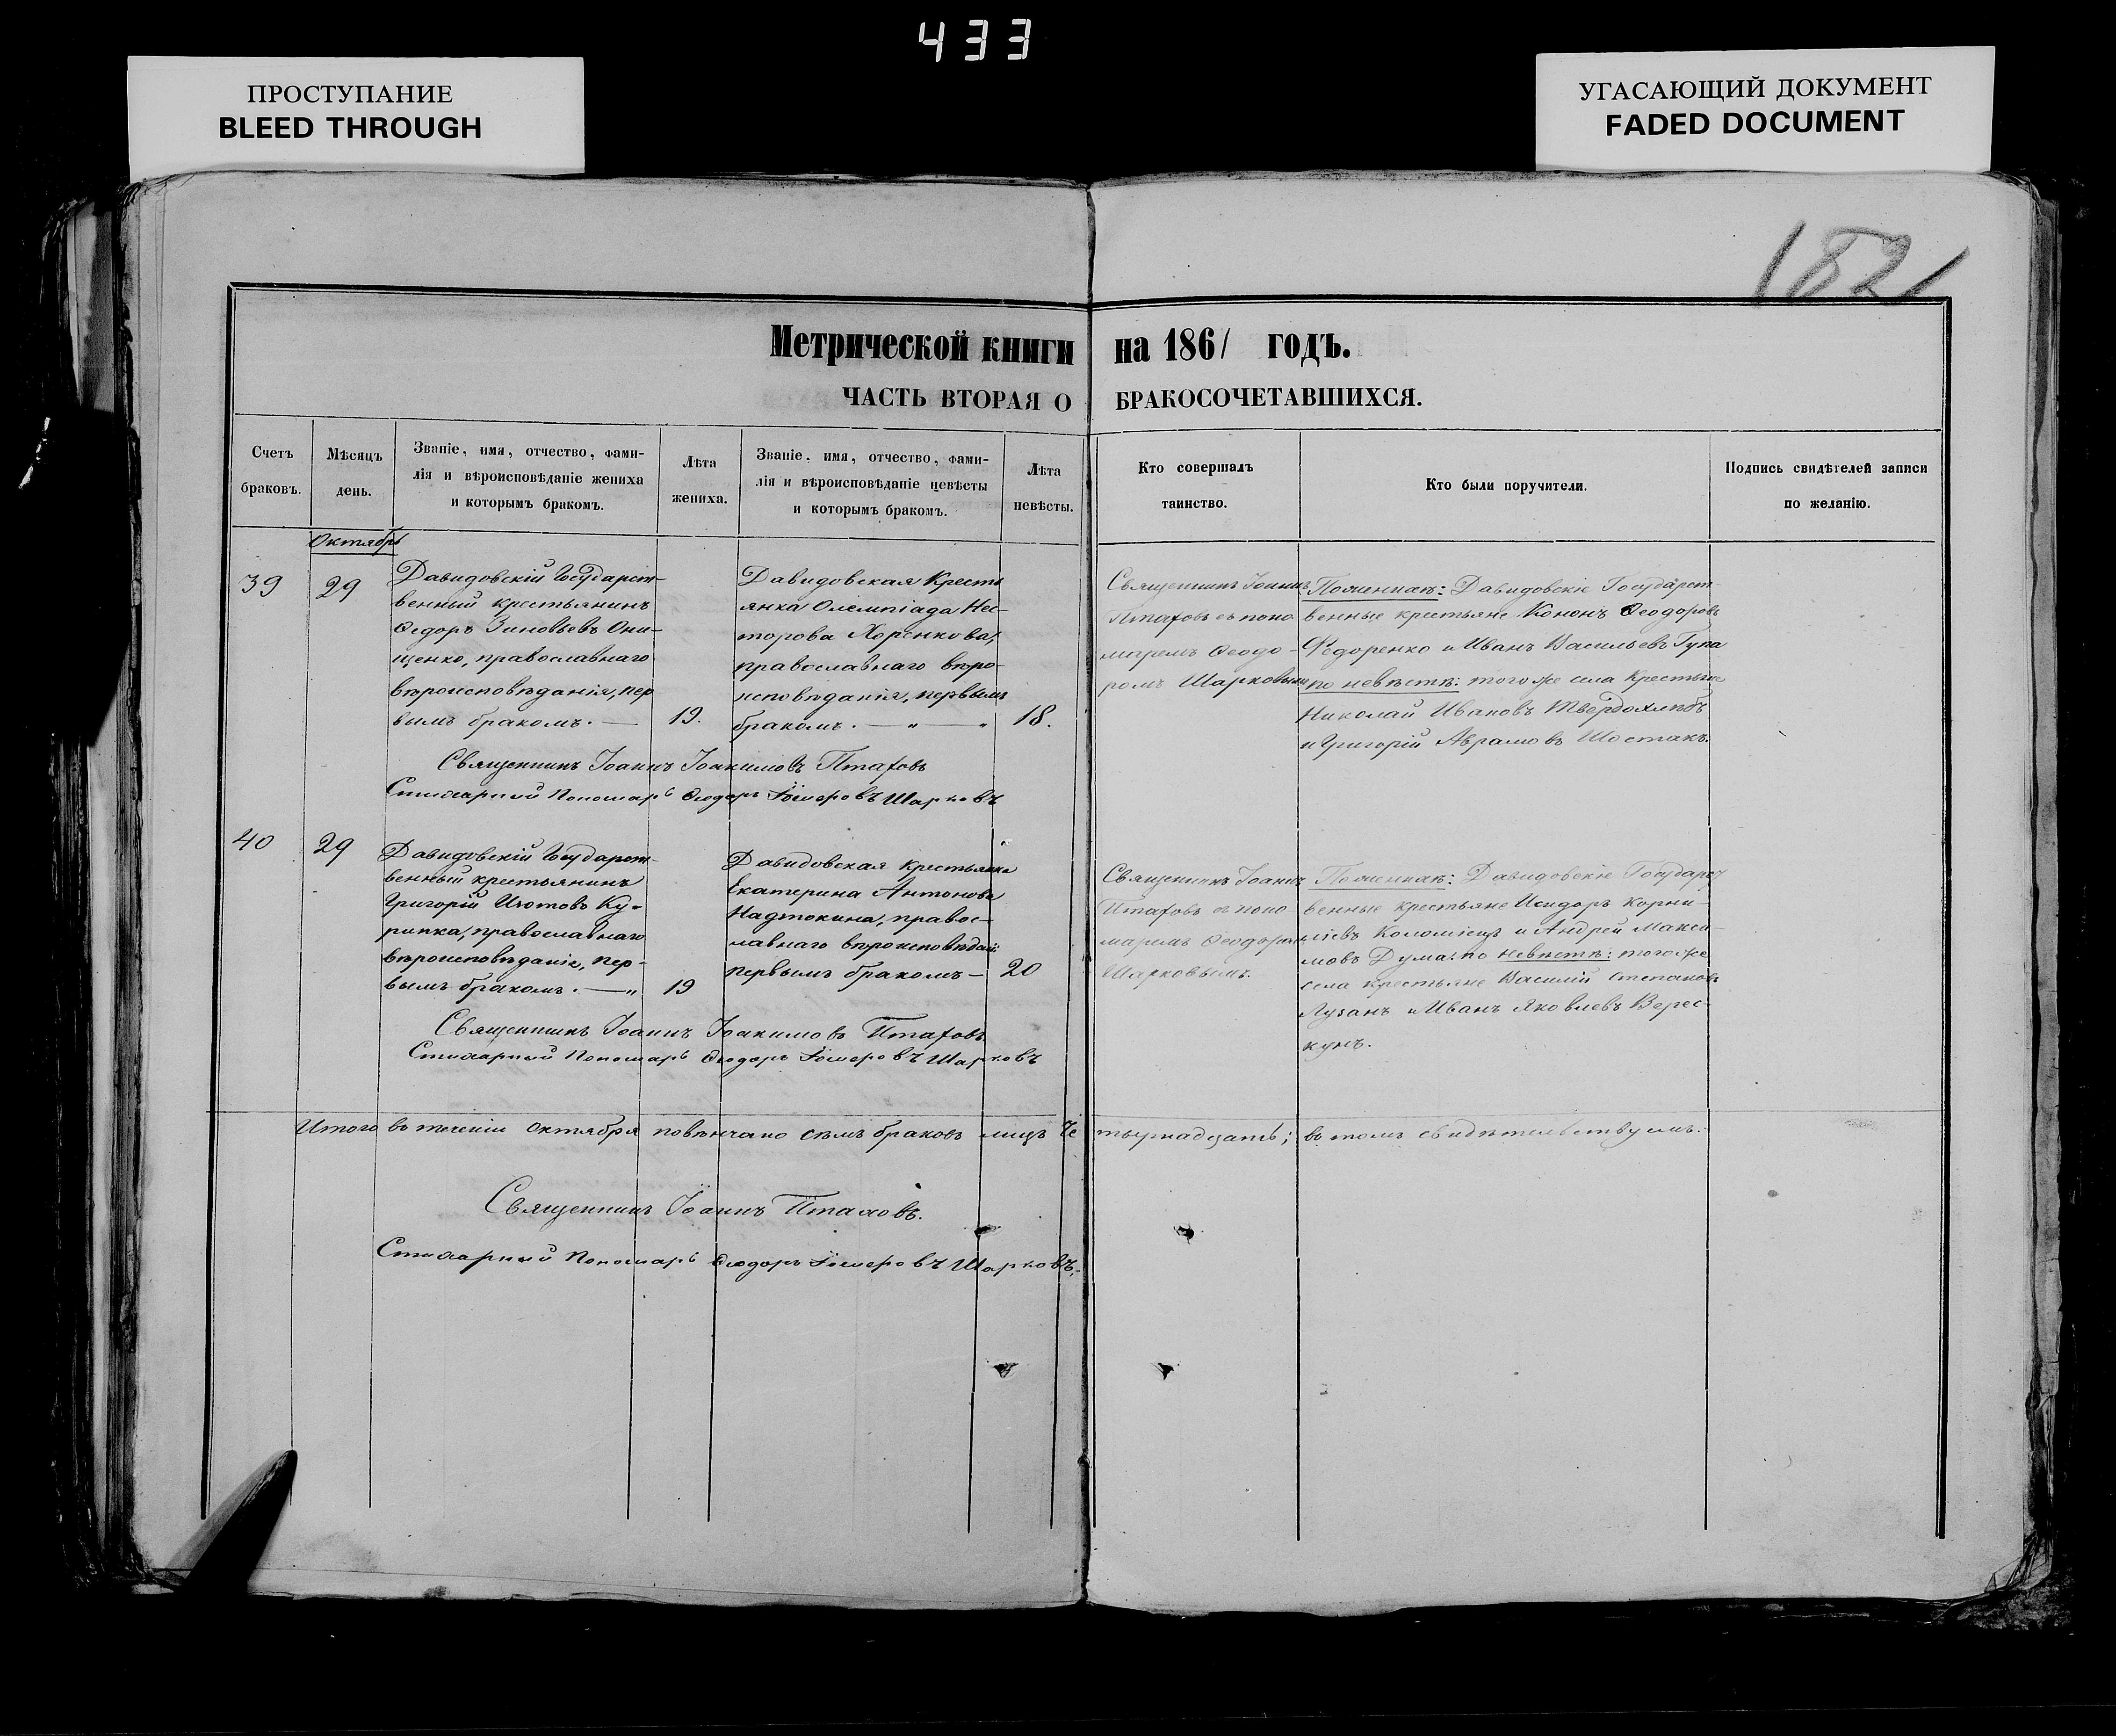 433
ПРОСТУПАНИЕ
BLEED THROUGH
УГАСАЮЩИЙ ДОКУМЕНТ
FADED DOCUMENT
1821
Метрической книги на 1861 годъ.
ЧАСТЬ ВТОРАЯ О БРАКОСОЧЕТАВШИХСЯ.
Счетъ
браковъ.
Мѣсяцъ
день.
Званіе, имя, отчество, фами-
лія и вѣроисповѣданіе жениха
и которымъ бракомъ.
Лѣта
жениха.
Званіе, имя, отчество, фами-
лія и вѣроисповѣданіе невѣсты
и которымъ бракомъ.
Лѣта
невѣсты.
Кто совершалъ
таинство.
Кто были поручители.
Подпись свидѣтелей записи
по желанію.
Октябрь
39
29
Давидовскій Государст-
венный крестьянинъ
Ѳедоръ Зиновьевъ Они-
щенко, православнаго
вѣроисповѣданія, пер
вымъ бракомъ. —
19.
Давидовская Кресть
янка Олемпіада Нес-
торова Хоренкова,
православнаго вѣро-
исповѣданія, первымъ
бракомъ. — „ — „
18.
Священникъ Іоаннъ
Птаховъ съ поно
маремъ Ѳеодо-
ромъ Шарковымъ
По женихѣ: Давидовскіе Государст-
венные крестьяне Кононъ Ѳеодоровъ
Ѳедоренко и Иванъ Васильевъ Гупа
по невѣстѣ: того же села Крестьяне
Николай Ивановъ Твердохлѣбъ
и Григорій Аврамовъ Шостакъ.
Священникъ Іоаннъ Іоакимовъ Птаховъ
Стихарный Пономарь Ѳеодоръ Шарковъ
40
29
Давидовскій Государст-
венный крестьянинъ
Григорій Изотовъ Ку-
рипка, православнаго
вѣроисповѣданія, пер-
вымъ бракомъ. — „
19
Давидовская крестьянка
Екатерина Антонова
Надтокина, правос-
лавнаго вѣроисповѣдай:
первымъ бракомъ —
20
Священникъ Іоаннъ
Птаховъ съ поно
маремъ Ѳеодоромъ
Шарковымъ.
По женихѣ: Давидовскіе Государст
венные крестьяне Исидоръ Корни-
ліевъ Коломіецъ и Андрей Макси-
мовъ Дума. по невѣстѣ: того же
села крестьяне Василій Степановъ
Лузанъ и Иванъ Яковлевъ Верес-
кунъ.
Священникъ Іоаннъ Іоакимовъ Птаховъ
Стихарный Пономарь Ѳеодоръ Шарковъ
Итого въ теченіи Октября повѣнчано семъ браковъ лицъ че тырнадцать; въ томъ свидѣтельствуемъ:
Священникъ Іоаннъ Птаховъ.
Стихарный Пономарь Ѳеодоръ Шарковъ.